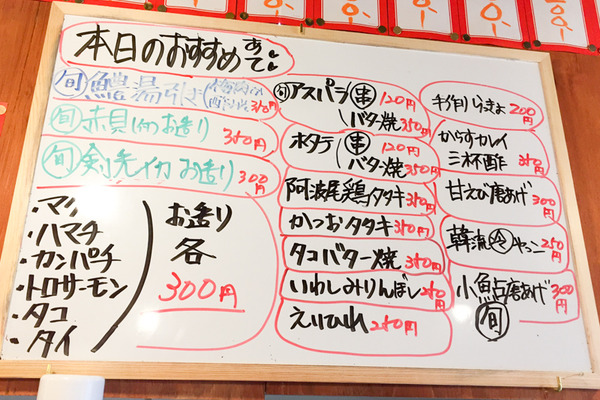 本日のおすすめあて
旬 鱧湯引き
350円
旬 赤貝 お造り
350円
旬 剣先イカ お造り
300円
・マグロ
・ハマチ
・カンパチ
・トロサーモン
・タコ
・タイ
お造り
各
300円
旬アスパラ 串 120円
バター焼 350円
ホタテ 串 120円
バター焼 350円
阿波尾鶏タタキ
かつおタタキ
タコバター焼
いわしみりんぼし
えいひれ
手作りらっきょ 200円
からすカレイ
三杯酢
甘えび唐あげ
300円
韓流冷やっこ 250円
小魚点唐あげ 300円
旬